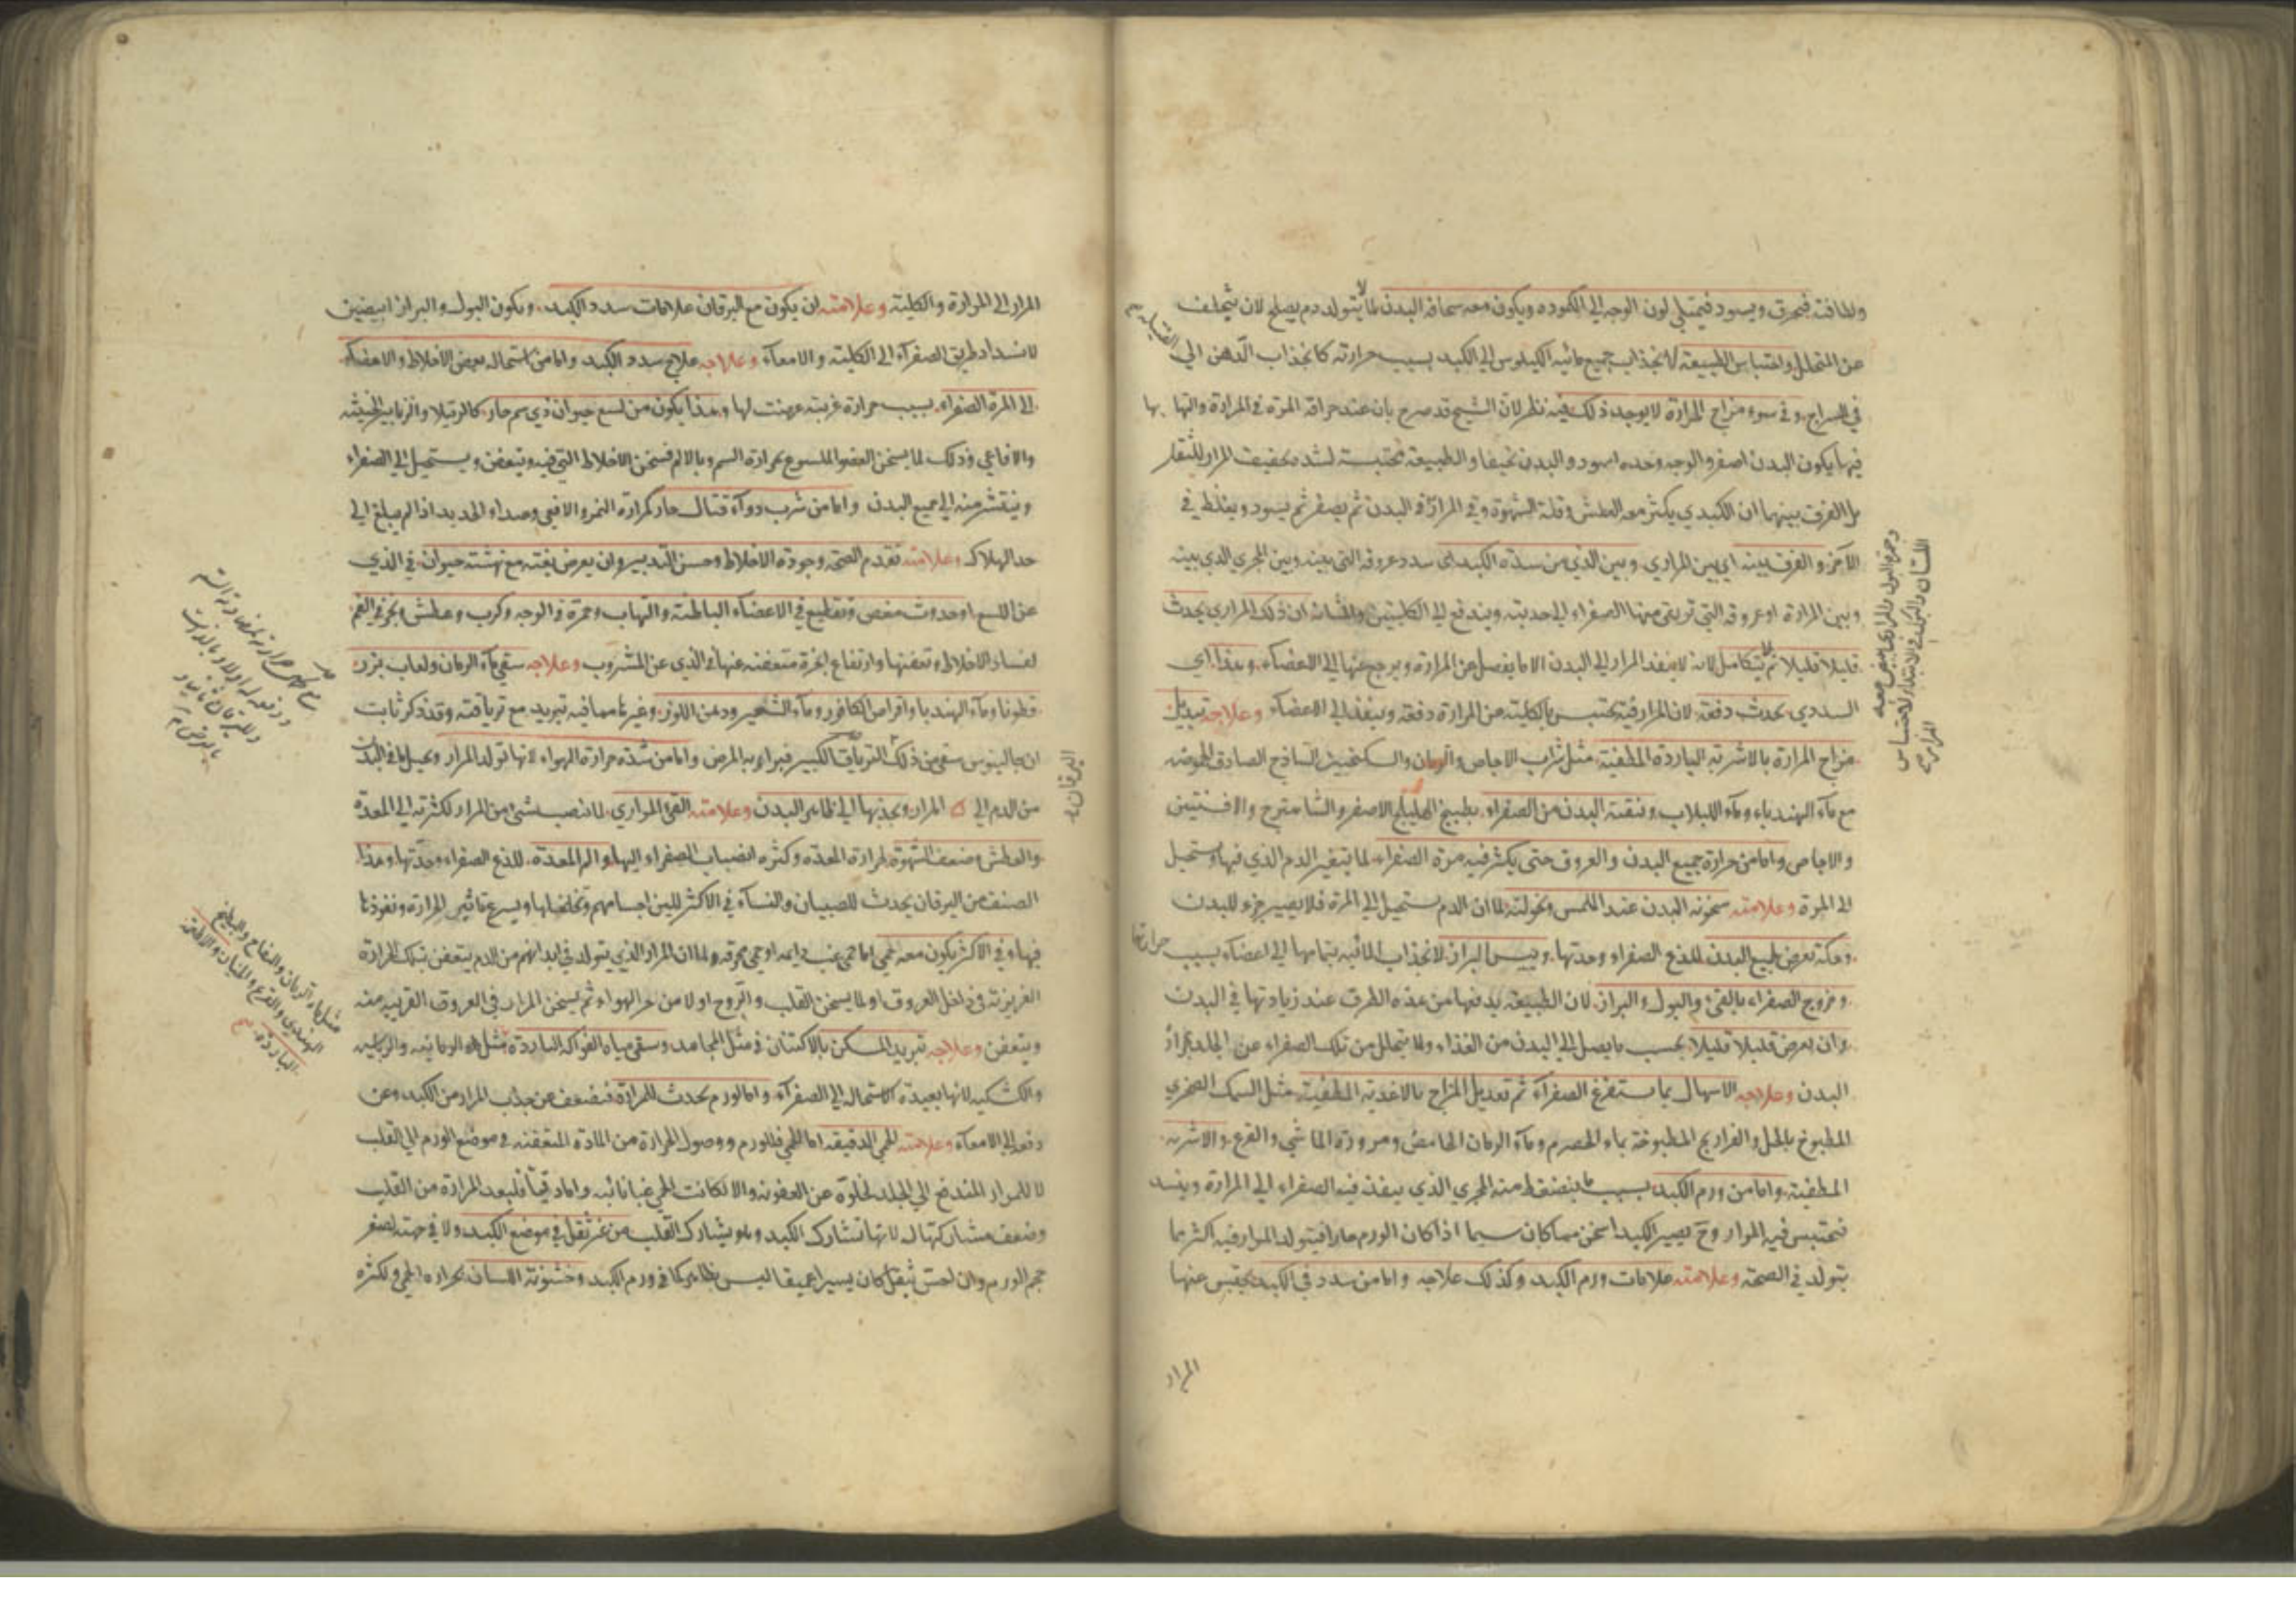 ولطافته فيحرق ويسود فيميل لون الوجه الى الكموده ويكون معه سخافة البدن لما لا يتولد دم يصلح لان يتخلف
عن المتحلل واحتباس الطبيعة لانجذاب جميع مائية الكيلوس الى الكبد بسبب حرارته كانجذاب الدهن الى الفتيلة
في السراج وفي سوء مزاج المرارة لا يوجد ذلك فيه نظر لان الشيخ قد صرح بان عند حراقة المرة في المرارة والتهابها
فيها يكون البدن اصفر والوجه وحده اسود والبدن نحيفا والطبيعة محتبسة لشدة تجفيف المرار للثفل
بل الفرق بينهما ان الكبدي يكثر معه العطش وقلة الشهوة وفي المراري البدن ثم يصفر ثم يسود ويغلظ في
الآخر والفرق بينه اي بين المراري وبين الذي من سدة الكبد اي سدد عروقه التي بينه وبين المجرى الذي بينه
وبين المرارة او عروقه التي ترتقي منها الصفراء الى حدبته ويندفع الى الكليتين والمثانة ان ذلك المراري يحدث
قليلا قليلا ثم يتكامل لانه لا ينفذ المرار الى البدن الا ما يفصل من المرارة ويرجع عنها الى الاعضاء وهذا اي
السددي يحدث دفعة لان المرار فيه يحتبس بالكلية من المرارة دفعة وينفذ الى الاعضاء وعلاجه تبديل
مزاج المرارة بالاشربة الباردة المطفئة مثل شراب الاجاص والرمان والسكنجبين الساذج الصادق الحموضة
مع ماء الهندباء وماء اللبلاب وتنقية البدن من الصفراء بطبيخ الهليلج الاصفر والشاهترج والافسنتين
والاجاص واما من حرارة جميع البدن والعروق حتى يكثر فيه مرة الصفراء لما يتغير الدم الذي فيها ويستحيل
الى المرة وعلامته سخونة البدن عند الملمس ونحولته لما ان الدم يستحيل الى المرة فلا يصير جزء للبدن
وحكة تعرض لجميع البدن للذع الصفراء وحدتها ويبس البراز لانجذاب المائية بتمامها الى اعضاء بسبب حرارتها
وخروج الصفراء بالقئ والبول والبراز لان الطبيعة يدفعها من هذه الطرق عند زيادتها في البدن
وان يعرض قليلا قليلا بحسب ما يصل الى البدن من الغذاء ولما يتحلل من تلك الصفراء عن الجلد بحرارة
البدن وعلاجه الاسهال بما يستفرغ الصفراء ثم تعديل المزاج بالاغذية المطفئة مثل السمك الصخري
المطبوخ بالخل والفراريج المطبوخة بماء الحصرم وماء الرمان الحامض ومزورة الماشي والقرع والاشربة
المطفئة واما من ورم الكبد بسبب ما ينضغط منه المجرى الذي ينفذ فيه الصفراء الى المرارة وينسد
فيحتبس فيه المرار وح يصير الكبد اسخن مما كان سيما اذا كان الورم حارا فيتولد المرار فيه اكثر مما
يتولد في الصحة وعلامته علامات ورم الكبد وكذلك علاجه واما من سدد في الكبد يحتبس عنها
المرار
وحمرة البول والمراري ابيض معه
اللسان والبراز في الابتداء لاحتباس
المرار
المرار الى المرارة والكلية وعلامته ان يكون مع اليرقان علامات سدد الكبد ويكون البول والبراز ابيضين
لانسداد طريق الصفراء الى الكلية والامعاء وعلاجه علاج سدد الكبد واما من استحالة بعض الاخلاط والاعضاء
الى المرة الصفراء بسبب حرارة غريبة عرضت لها وهذا يكون من لسع حيوان ذي سم حار كالرتيلا والزنابير الخبيثة
والافاعي وذلك لما يسخن العضو الملسوع بحرارة السم وبالالم فيسخن الاخلاط التي فيه ويتعفن ويستحيل الى الصفراء
وينتشر منه الى جميع البدن واما من شرب دواء قتال حار كمرارة النمر والافعى وصداء الحديد اذا لم يبلغ الى
حد الهلاك وعلامته تقدم الصحة وجودة الاخلاط وحسن التدبير وان يعرض بغتة مع نهشة حيوان في الذي
عن اللسع او حدوث مغص وتقطيع في الاعضاء الباطنة والتهاب وحمرة في الوجه وكرب وعطش وبخر في الفم
لفساد الاخلاط وتعفنها وارتفاع ابخرة متعفنة عنها في الذي عن المشروب وعلاجه سقي ماء الرمان ولعاب بزر
قطونا وماء الهندبا واقراص الكافور وماء الشعير ودهن اللوز وغيرها مما فيه تبريد مع ترياقية وقد ذكر ثابت
ان جالينوس سقى من ذلك الترياق الكبير فبراء به المرض واما من شدة حرارة الهواء لانها تولد المرار ويحيل ما في البدن
من الدم الى المرار ويجذبها الى ظاهر البدن وعلامته القئ المراري لما ينصب شئ من المرار لكثرته الى المعدة
والعطش وضعف الشهوة لحرارة المعدة وكثرة انصباب الصفراء اليها والم المعدة للذع الصفراء وحدتها وهذا
الصنف من اليرقان يحدث للصبيان والنساء في الاكثر للين اجسامهم وتخلخلها ويسرع تاثير الحرارة ونفوذها
فيها وفي الاكثر يكون معه حمى اما حمى غب دايمه او حمى محرقه لما ان المرار الذي يتولد في ابدانهم من الدم يتعفن بتلك الحرارة
الغريزية في داخل العروق او لما يسخن القلب والروح اولا من حر الهواء ثم يسخن المرار في العروق القريبه منه
ويتعفن وعلاجه تبريد المسكن بالاكتنان في مثل المجامد وسقي مياه الفواكه الباردة مثل الرمانيه والريباسيه
والكشكيه لانها بعيدة الاستحالة الى الصفراء واما لورم يحدث للمرارة فيضعف عن جذب المرار من الكبد وعن
دفعه الى الامعاء وعلامته الحمى الدقيقه اما الحمى فللورم ووصول الحرارة من المادة المتعفنه في موضع الورم الى القلب
لا للمرار المندفع الى الجلد لخلوه عن العفونه والا لكانت الحمى غبا نائبه واما دقيقا فلبعد المرارة من القلب
وضعف مشاركتها له لانها تشارك الكبد وهو يشارك القلب من غير ثقل في موضع الكبد ولا في جهته لصغر
حجم الورم وان احس بثقل كان يسيرا عميقا ليس بظاهر كما في ورم الكبد وخشونة اللسان لحرارة الحمى ولكثرة
اليرقان
مثل ماء الرمان والتفاح والبطيخ
الهندي والقرع والخيار
الباردة